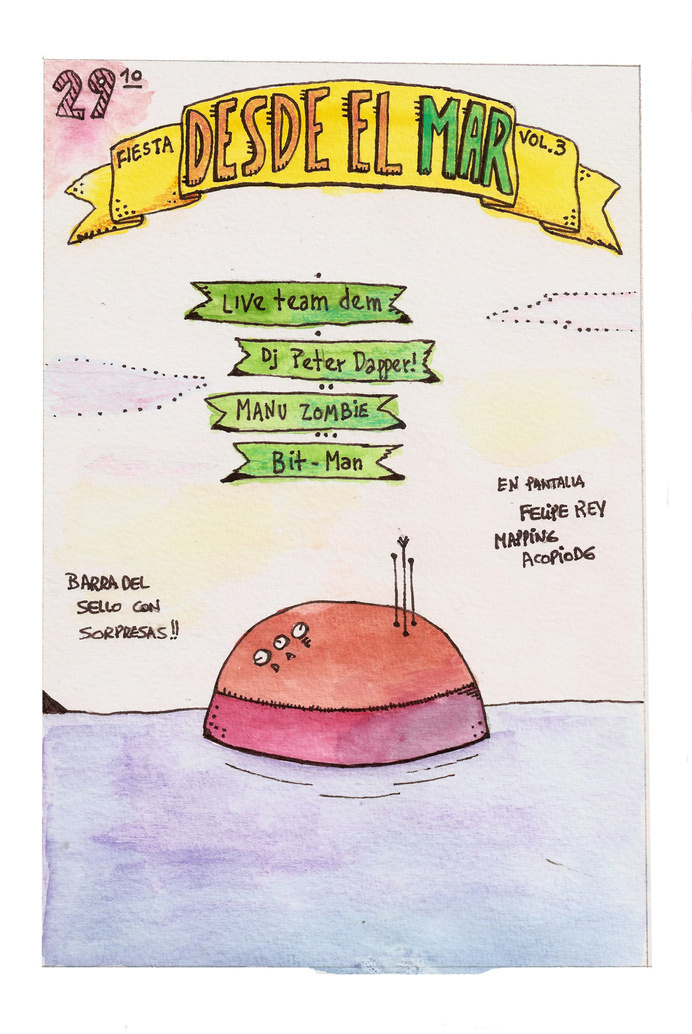 29 1º
FIESTA DESDE EL MAR VOL.3
Live team dem
Dj Peter Dapper!
MANU ZOMBIE
Bit-Man
EN PANTALLA
FELIPE REY
MAPPING
ACOPIODE
BARRA DEL
SELLO CON
SORPRESAS!!
D A F